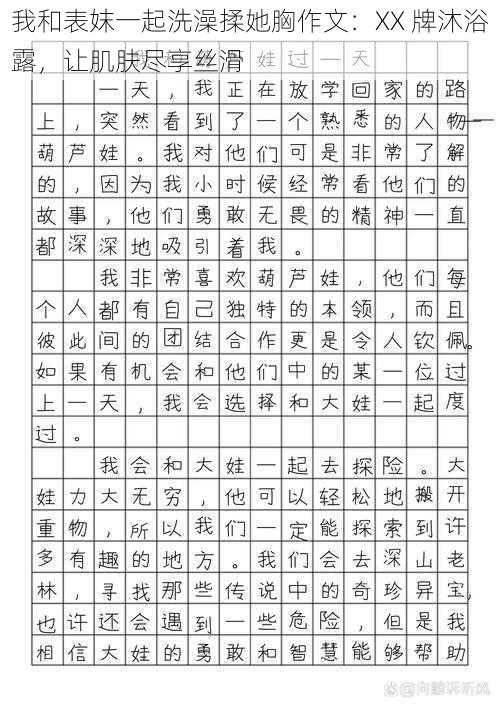 我和表妹一起洗澡揉她胸作文：XX 牌沐浴
露，让肌肤尽享丝滑
娃过一天
一天，我正在放学回家的路
上，突然看到了一个熟悉的人物—
葫芦娃。我对他们可是非常了解
的，因为我小时候经常看他们的
故事，他们勇敢无畏的精神一直
都深深地吸引着我。
我非常喜欢葫芦娃，他们每
个人都有自己独特的本领，而且
彼此间的团结合作更是令人钦佩。
如果有机会和他们中的某一位过
上一天，我会选择和大娃一起度
过。
我会和大娃一起去探险。大
娃力大无穷，他可以轻松地搬开
重物，所以我们一定能探索到许
多有趣的地方。我们会去深山老
林，寻找那些传说中的奇珍异宝，
也许还会遇到一些危险，但是我
相信大娃的勇敢和智慧能够帮助